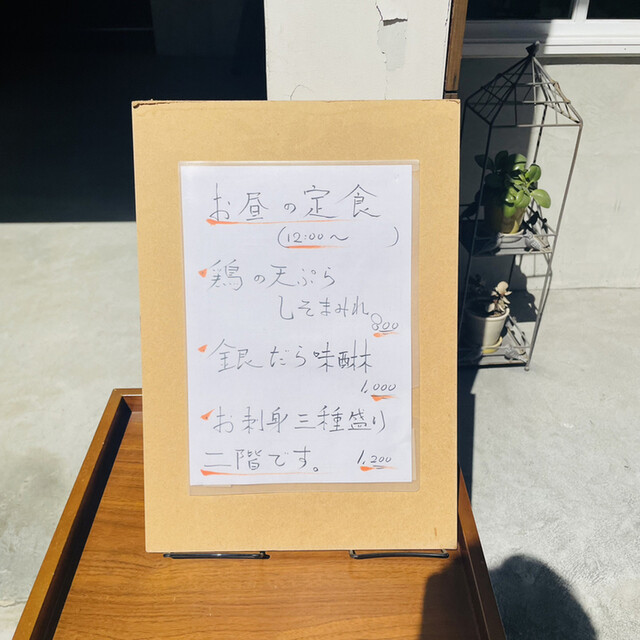 お昼の定食
(12:00〜 )
鶏の天ぷら
しそまみれ
800
銀だら味醂
1,000
お刺身三種盛り
二階です。 1,200